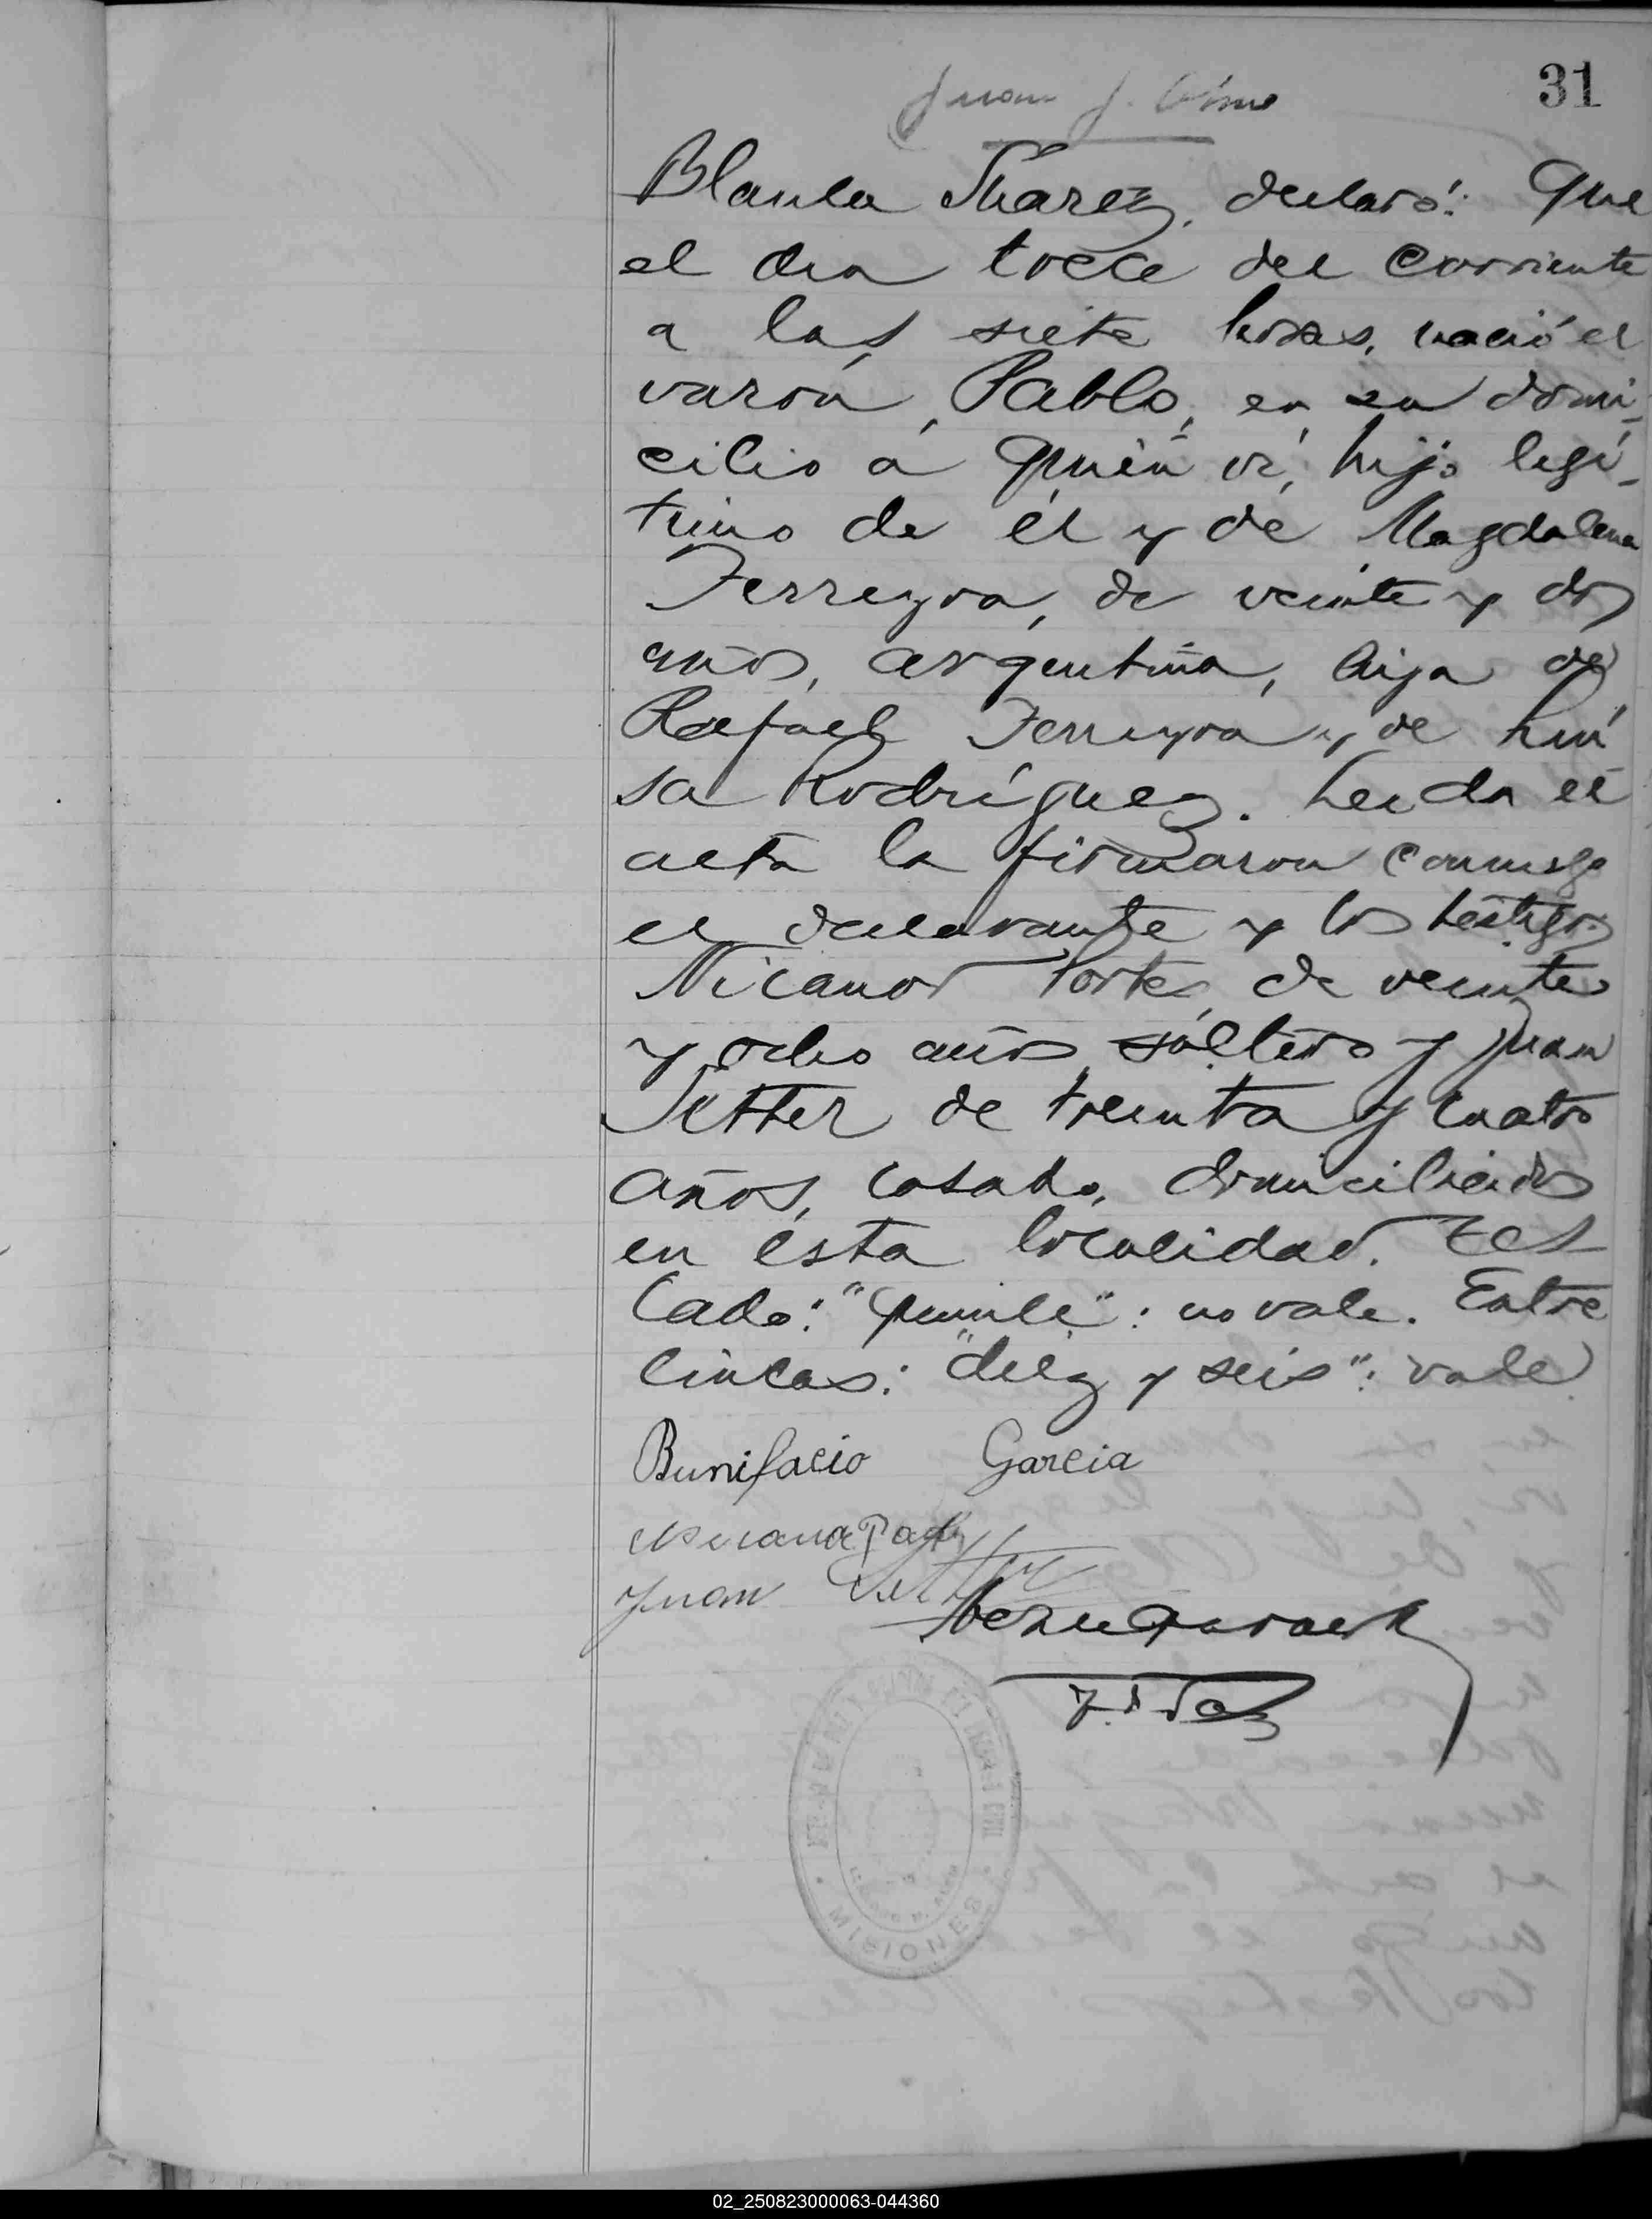 31
Juan J.
Blanca Suarez, declaró: Que
el dia trece del corriente
a las siete horas, nació el
varón, Pablo, en su domi-
cilio á quién ví, hijo legí-
timo de él y de Magdalena
Ferreyra, de veinte y dos
años, argentina, hija de
Rafael Ferreyra y de Luí
sa Rodríguez. Leida el
acta la firmaron conmigo
el declarante y los testigos
Nicanor Portes, de veinte
y ocho años, soltero y Juan
Setter de treinta y cuatro
años, casado, domiciliados
en ésta localidad. Tes
tado: "quince": no vale. Entre
lineas: "diez y seis": vale
Bunifacio Garcia
Juan Setter
J. de Paz
MISIONES
02_250823000063-044360